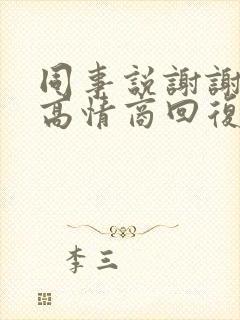 同事説謝謝
高情商回復
李三